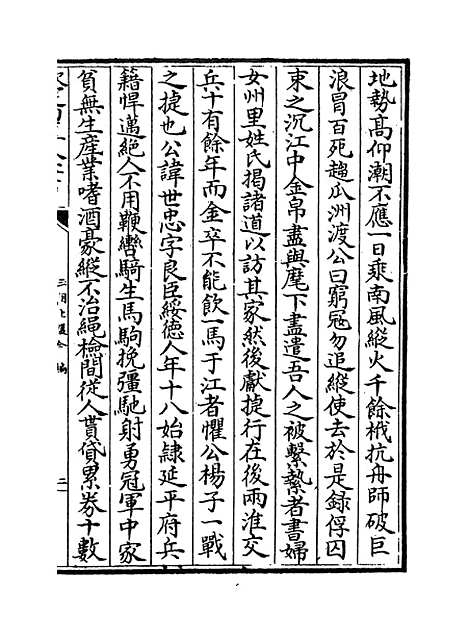 地勢髙仰潮不應一日乘南風縱火千餘栰抗舟師破巨
浪冒百死趨瓜洲渡公曰窮冦勿追縱使去於是録俘囚
束之沉江中金帛盡與麾下盡遣吾人之被繫縶者書婦
女州里姓氏揭諸道以訪其家然後獻捷行在後兩淮交
兵十有餘年而金卒不能飲一馬于江者懼公楊子一戰
之捷也公諱世忠字良臣綏徳人年十八始隷延平府兵
籍悍邁絶人不用鞭轡騎生馬駒挽彊馳射勇冠軍中家
貧無生産業嗜酒豪縱不治繩檢間従人貰貸累券十數
二